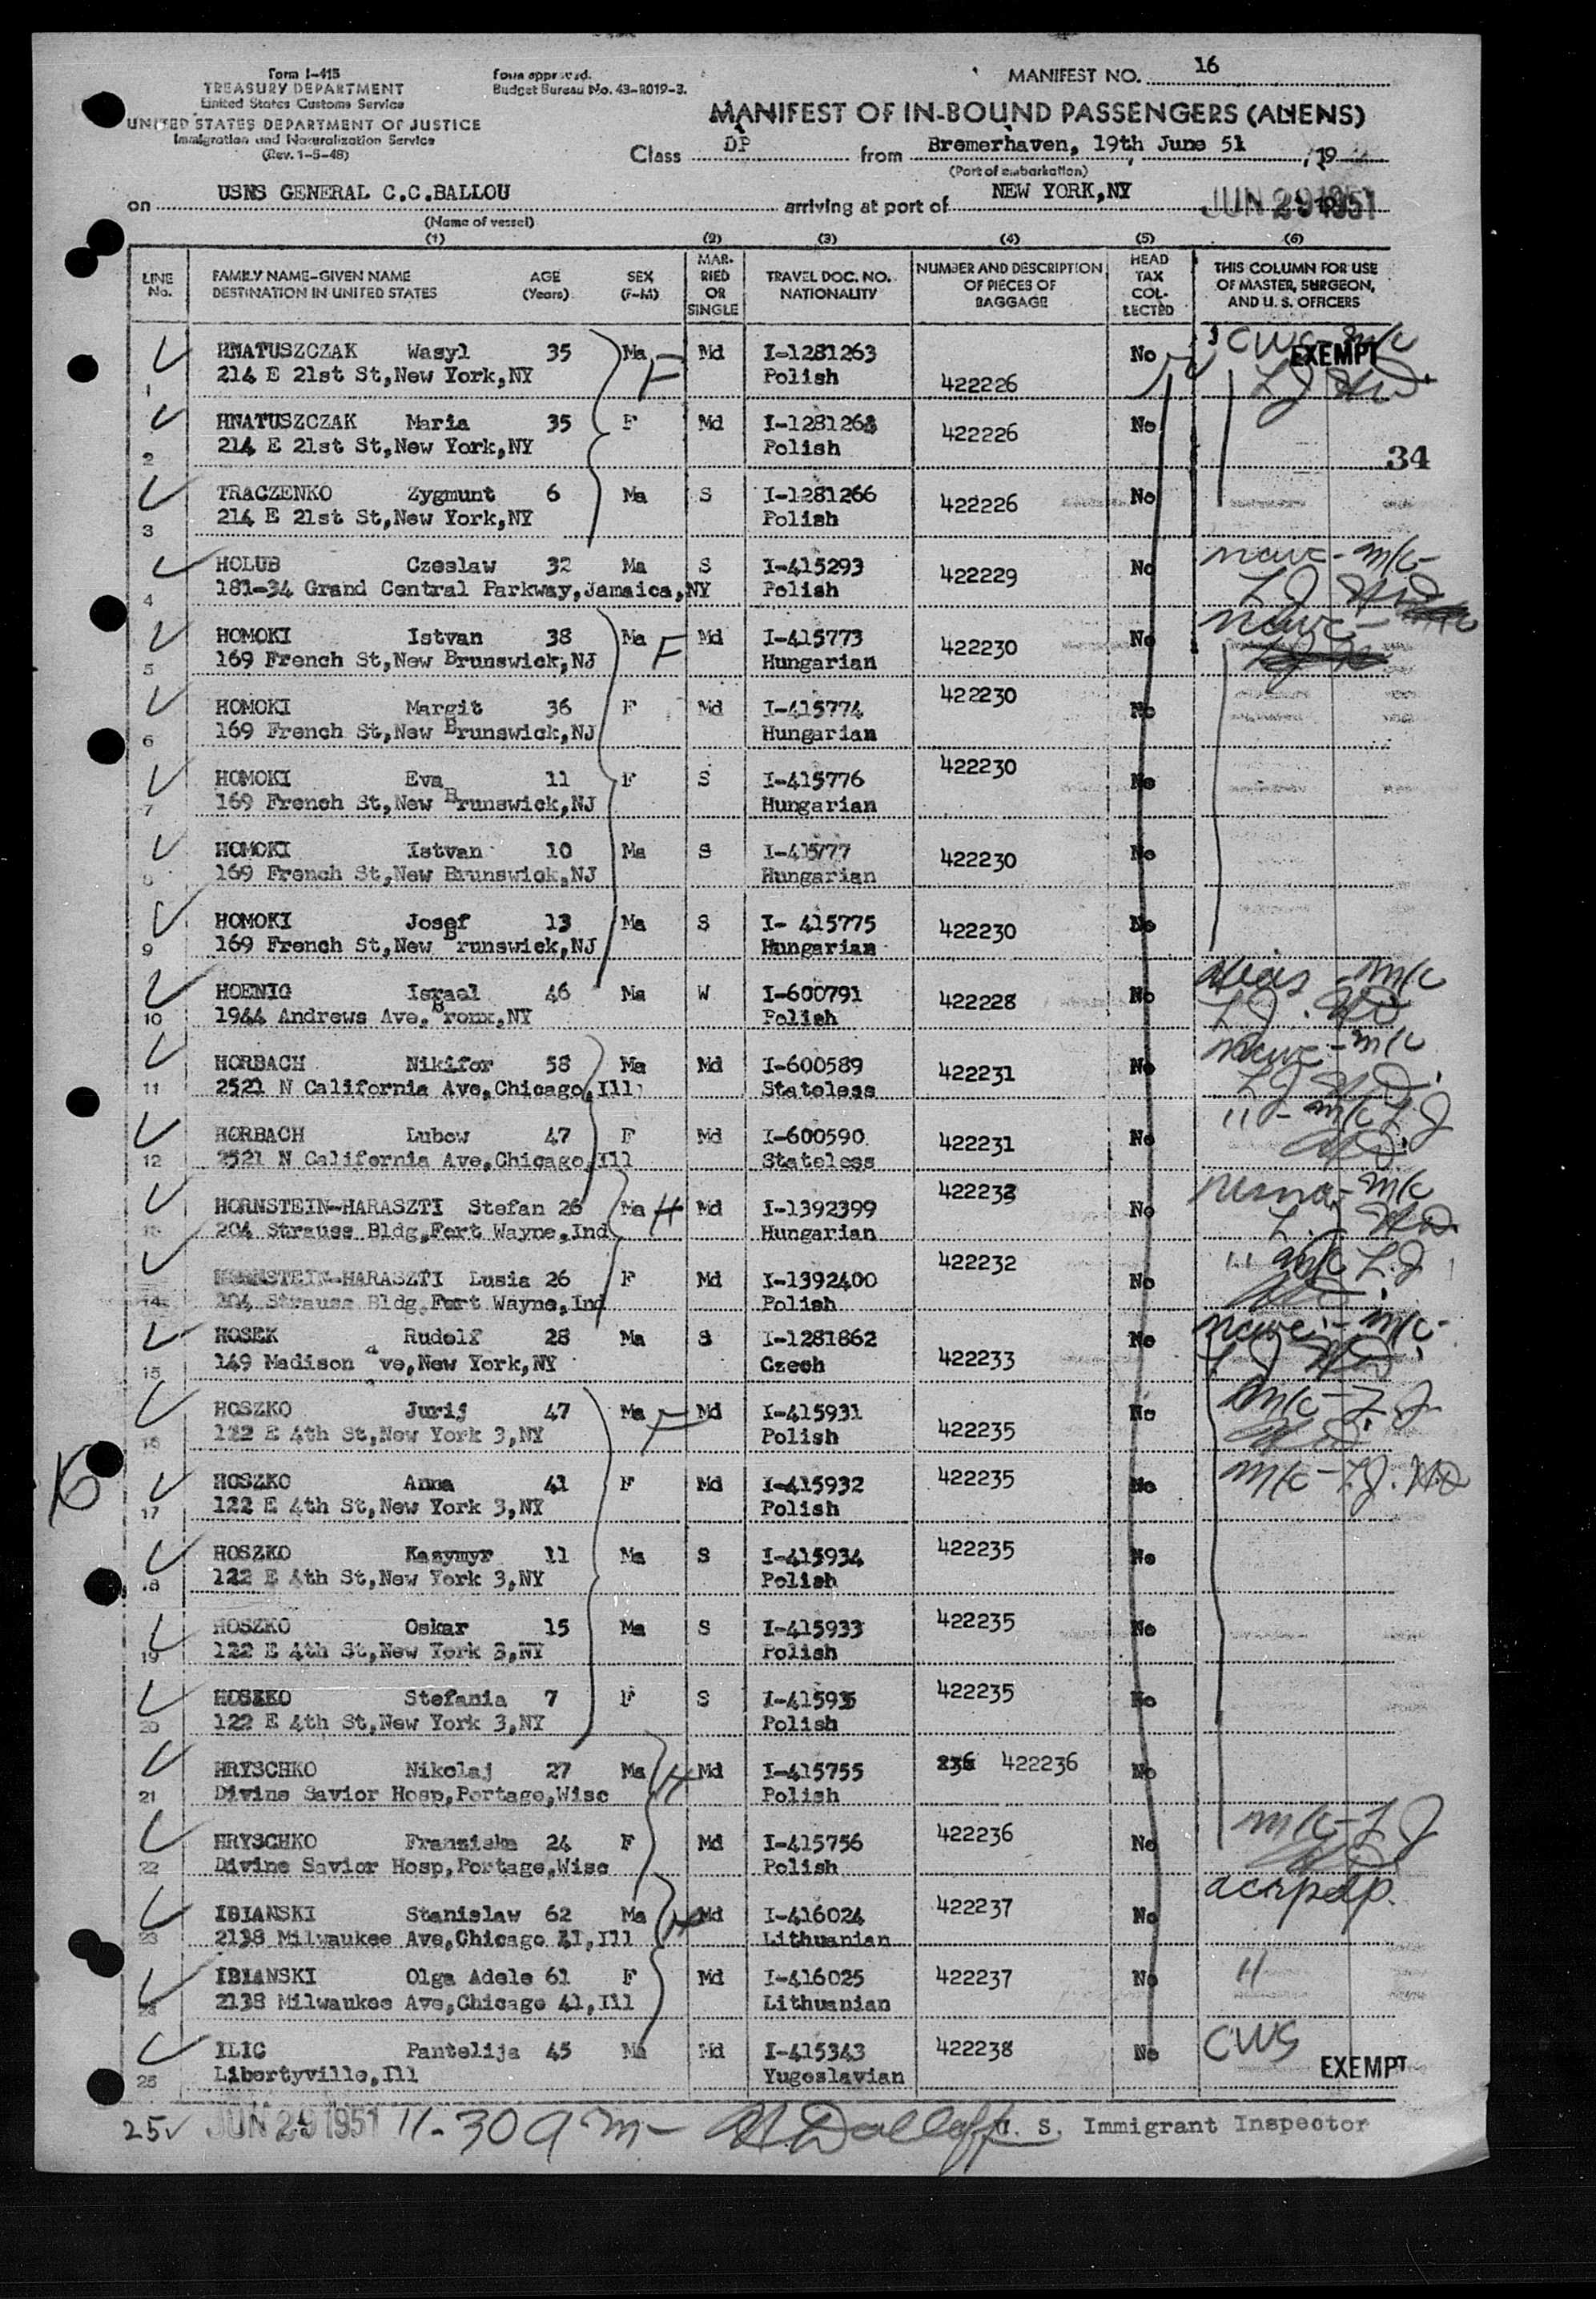 Form I-415
TREASURY DEPARTMENT
United States Customs Service
UNITED STATES DEPARTMENT OF JUSTICE
Immigration and Naturalization Service
(Rev. 1-5-48)
Form approved.
Budget Bureau No. 43-R019-3.
MANIFEST NO. 16
MANIFEST OF IN-BOUND PASSENGERS (ALIENS)
Class DP from Bremerhaven, 19th June 51, 19
(Port of embarkation)
on USNS GENERAL C.C.BALLOU arriving at port of NEW YORK,NY JUN 29 1951
(Name of vessel)
(1) (2) (3) (4) (5) (6)
LINE No. FAMILY NAME-GIVEN NAME DESTINATION IN UNITED STATES AGE (Years) SEX (F-M) MARRIED OR SINGLE TRAVEL DOC. NO. NATIONALITY NUMBER AND DESCRIPTION OF PIECES OF BAGGAGE HEAD TAX COLLECTED THIS COLUMN FOR USE OF MASTER, SURGEON, AND U. S. OFFICERS
HNATUSZCZAK Wasyl 35 Ma F Md I-1281263 No CWS - m/c EXEMPT
1 214 E 21st St,New York,NY Polish 422226
HNATUSZCZAK Maria 35 F Md I-1281264 422226 No
2 214 E 21st St,New York,NY Polish
34
TRACZENKO Zygmunt 6 Ma S I-1281266 422226 No
3 214 E 21st St,New York,NY Polish
HOLUB Czeslaw 32 Ma S I-415293 422229 No ncwc - m/c -
4 181-34 Grand Central Parkway,Jamaica,NY Polish
HOMOKI Istvan 38 Ma F Md I-415773 422230 No ncwc -
5 169 French St,New Brunswick,NJ Hungarian
HOMOKI Margit 36 F Md I-415774 422230 No
6 169 French St,New Brunswick,NJ Hungarian
HOMOKI Eva 11 F S I-415776 422230 No
7 169 French St,New Brunswick,NJ Hungarian
HOMOKI Istvan 10 Ma S I-415777 422230 No
8 169 French St,New Brunswick,NJ Hungarian
HOMOKI Josef 13 Ma S I- 415775 422230 No
9 169 French St,New Brunswick,NJ Hungarian
HOENIG Israel 46 Ma W I-600791 422228 No m/c
10 1944 Andrews Ave.Bronx,NY Polish
HORBACH Nikifor 58 Ma Md I-600589 422231 No ncwc - m/c
11 2521 N California Ave,Chicago,Ill Stateless
HORBACH Lubow 47 F Md I-600590 422231 No " - m/c L J
12 2521 N California Ave,Chicago,Ill Stateless
HORNSTEIN-HARASZTI Stefan 26 Ma H Md I-1392399 422232 No m/c
13 204 Strauss Bldg,Fort Wayne,Ind Hungarian
HORNSTEIN-HARASZTI Lusia 26 F Md I-1392400 422232 No " m/c L.J.
14 204 Strauss Bldg,Fort Wayne,Ind Polish
HOSEK Rudolf 28 Ma S I-1281862 422233 No ncwc - m/c -
15 149 Madison ave,New York,NY Czech
HOSZKO Jurij 47 Ma F Md I-415931 422235 No m/c - L J
16 122 E 4th St,New York 3,NY Polish
HOSZKO Anna 41 F Md I-415932 422235 No m/c - L.J. HD
17 122 E 4th St,New York 3,NY Polish
HOSZKO Kasymyr 11 Ma S I-415934 422235 No
18 122 E 4th St,New York 3,NY Polish
HOSZKO Oskar 15 Ma S I-415933 422235 No
19 122 E 4th St,New York 3,NY Polish
HOSZKO Stefania 7 F S I-415935 422235 No
20 122 E 4th St,New York 3,NY Polish
HRYSCHKO Nikolaj 27 Ma H Md I-415755 236 422236 No
21 Divine Savior Hosp,Portage,Wisc Polish
HRYSCHKO Franziska 24 F Md I-415756 422236 No m/c - L J
22 Divine Savior Hosp,Portage,Wisc Polish
IBIANSKI Stanislaw 62 Ma H Md I-416024 422237 No acrpdp.
23 2138 Milwaukee Ave,Chicago 41,Ill Lithuanian
IBIANSKI Olga Adele 61 F Md I-416025 422237 No "
24 2138 Milwaukee Ave,Chicago 41,Ill Lithuanian
ILIC Pantelija 45 Ma Md I-415343 422238 No CWS
25 Libertyville,Ill Yugoslavian EXEMPT
25 JUN 29 1951 11-30 am - U. S. Immigrant Inspector
16